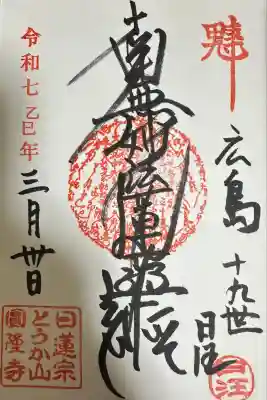 廣島
十九世
日注
南無妙法蓮華経
令和七乙巳年
三月卅日
日蓮宗
とうか山
圓隆寺